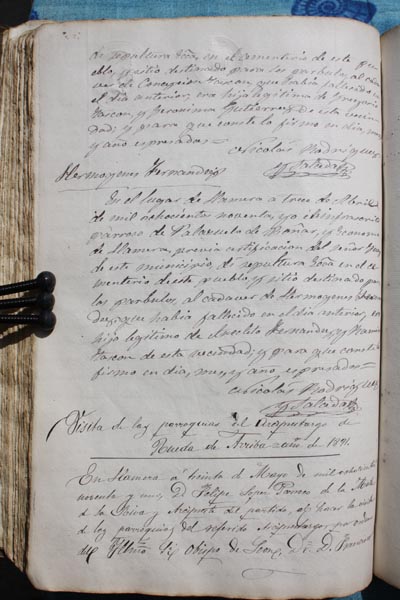 de sepultura Ecca. en el cementerio de este pue
blo, y sitio destinado para los parbulos, al cadá
ver de Concepcion Tascon, que había fallecido en
el dia anterior, era hija legitima de Gregorio
Tascon, y Geronima Gutierrez, de esta vecin
dad; y para que conste lo firmo en dia, mes,
y año espresados=
Nicolas Rodriguez
y Salcedo
Hermogenes Fernandez
En el lugar de Llamera a trece de Abril
de mil ochocientos noventa, yo el infrascrito
parroco de Valdecuesta de Boñar, y Economo
de Llamera, previa certificacion del Señor Juez
de este municipio, di sepultura Ecca. en el ce
menterio de este pueblo, y sitio destinado para
los parbulos, al cadaver de Hermogenes Fernan
dez, que habia fallecido en el dia anterior, era
hijo legitimo de Fernandez, y
Tascon de esta vecindad; y para que conste lo
firmo en dia, mes, y año espresados=
Nicolas Rodriguez
y Salcedo
Visita de las parroquias del Arciprestazgo de
Rueda de Arriba año de 1891.
En Llamera á treinta de Mayo de mil ochocientos
noventa y uno, D. Felipe
de la y Arcipreste del partido, al hacer la visita
de las parroquias del referido Arciprestazgo por orden
del Iltmo. Sr. Obispo de Leon, Dr. D. Francisco